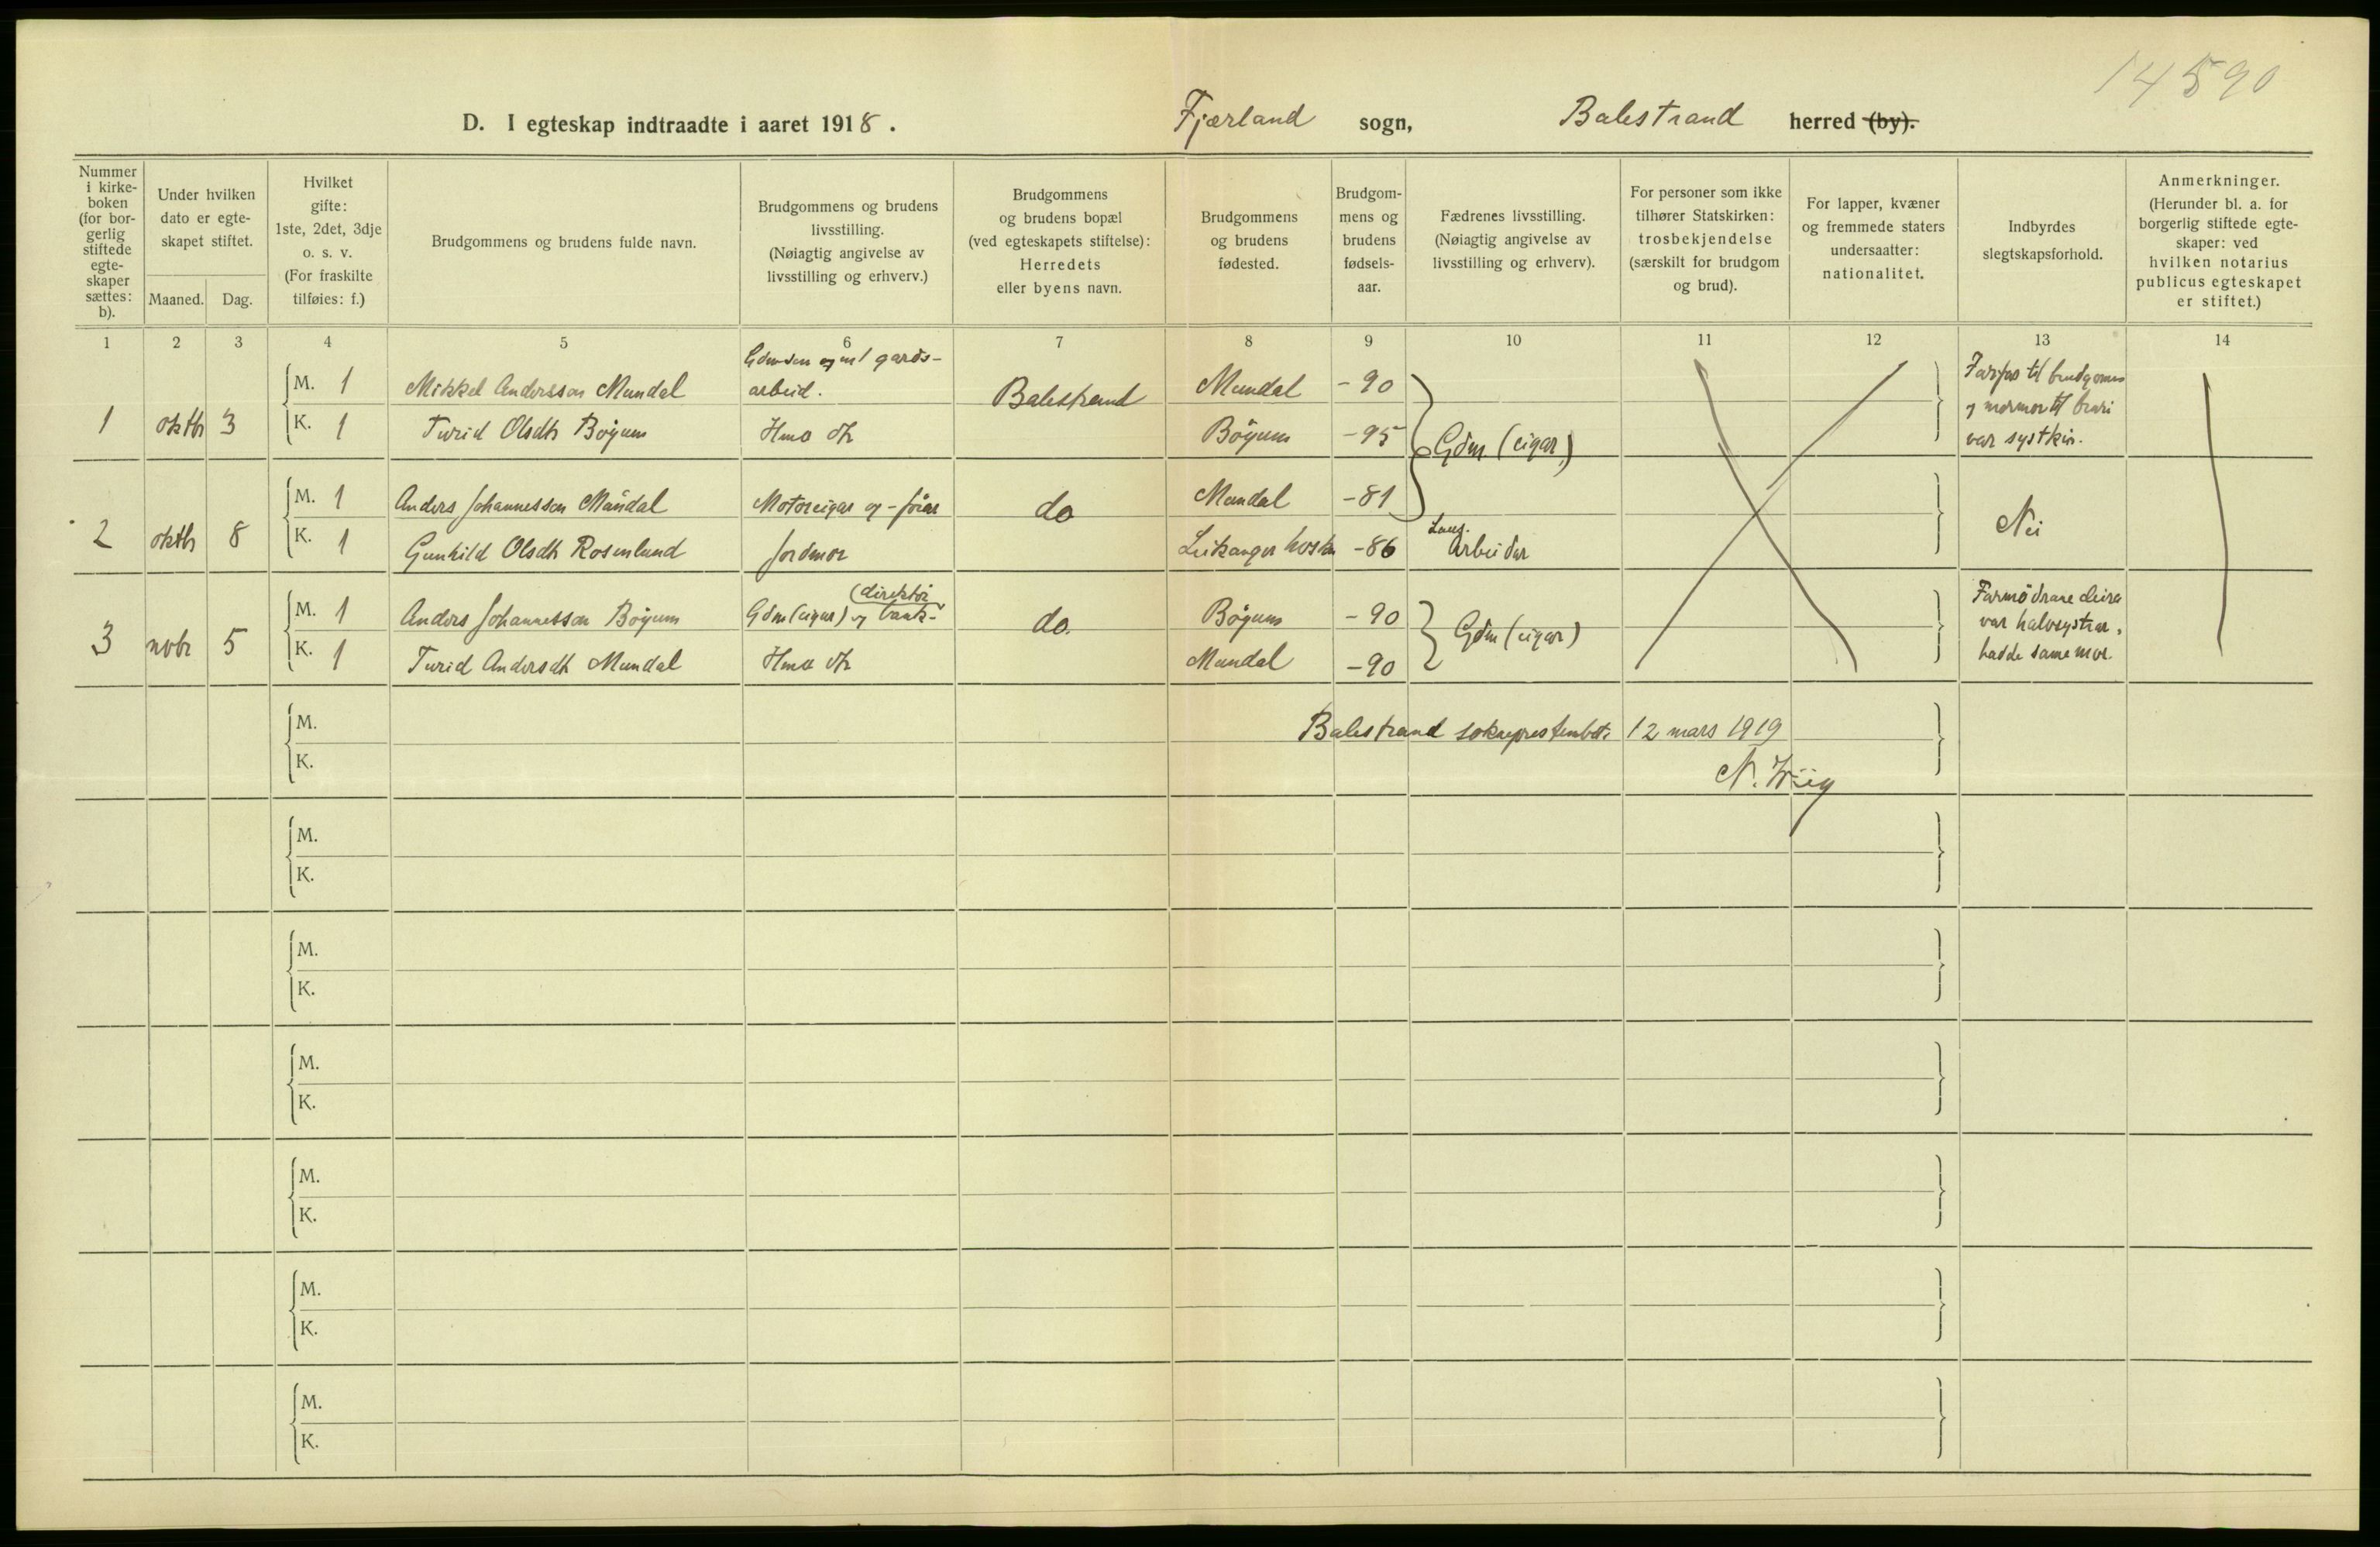 14590
D. I egteskap indtraadte i aaret 1918. Fjærland sogn, Balestrand herred (by).
Nummer i kirkeboken (for borgerlig stiftede egteskaper sættes: b).
Under hvilken dato er egteskapet stiftet.
Maaned. Dag.
Hvilket gifte: 1ste, 2det, 3dje o. s. v. (For fraskilte tilføies: f.)
Brudgommens og brudens fulde navn.
Brudgommens og brudens livsstilling. (Nøiagtig angivelse av livsstilling og erhverv.)
Brudgommens og brudens bopæl (ved egteskapets stiftelse): Herredets eller byens navn.
Brudgommens og brudens fødested.
Brudgommens og brudens fødselsaar.
Fædrenes livsstilling. (Nøiagtig angivelse av livsstilling og erhverv).
For personer som ikke tilhører Statskirken: trosbekjendelse (særskilt for brudgom og brud).
For lapper, kvæner og fremmede staters undersaatter: nationalitet.
Indbyrdes slegtskapsforhold.
Anmerkninger. (Herunder bl. a. for borgerlig stiftede egteskaper: ved hvilken notarius publicus egteskapet er stiftet.)
1 2 3 4 5 6 7 8 9 10 11 12 13 14
1 oktbr 3
M. 1 Mikkel Andersson Mundal Gdmson og m/ gards-
arbeid. Balestrand Mundal -90
K. 1 Turid Olsdtr Bøyum Hma dtr Bøyum -95
Gdm. (eigar)
Farfar til brudgomen
og mormor til bruri
var systkin.
2 oktbr 8
M. 1 Anders Johannesson Mundal Motoreigar og -førar do Mundal -81
K. 1 Gunhild Olsdtr Rosenlund Jordmor Leikanger -86
Laus.
Arbeidar
Nei
3 nobr 5
M. 1 Anders Johannesson Bøyum Gdm (eigar) og bank-
(direktør do. Bøyum -90
K. 1 Turid Andersdtr Mundal Hma dtr Mundal -90
Gdm (eigar)
Farmødrane deira
var halvsystrar,
hadde same mor.
M.
K.
Balestrand sokneprestembet, 12 mars 1919
N. Wiig
M.
K.
M.
K.
M.
K.
M.
K.
M.
K.
M.
K.